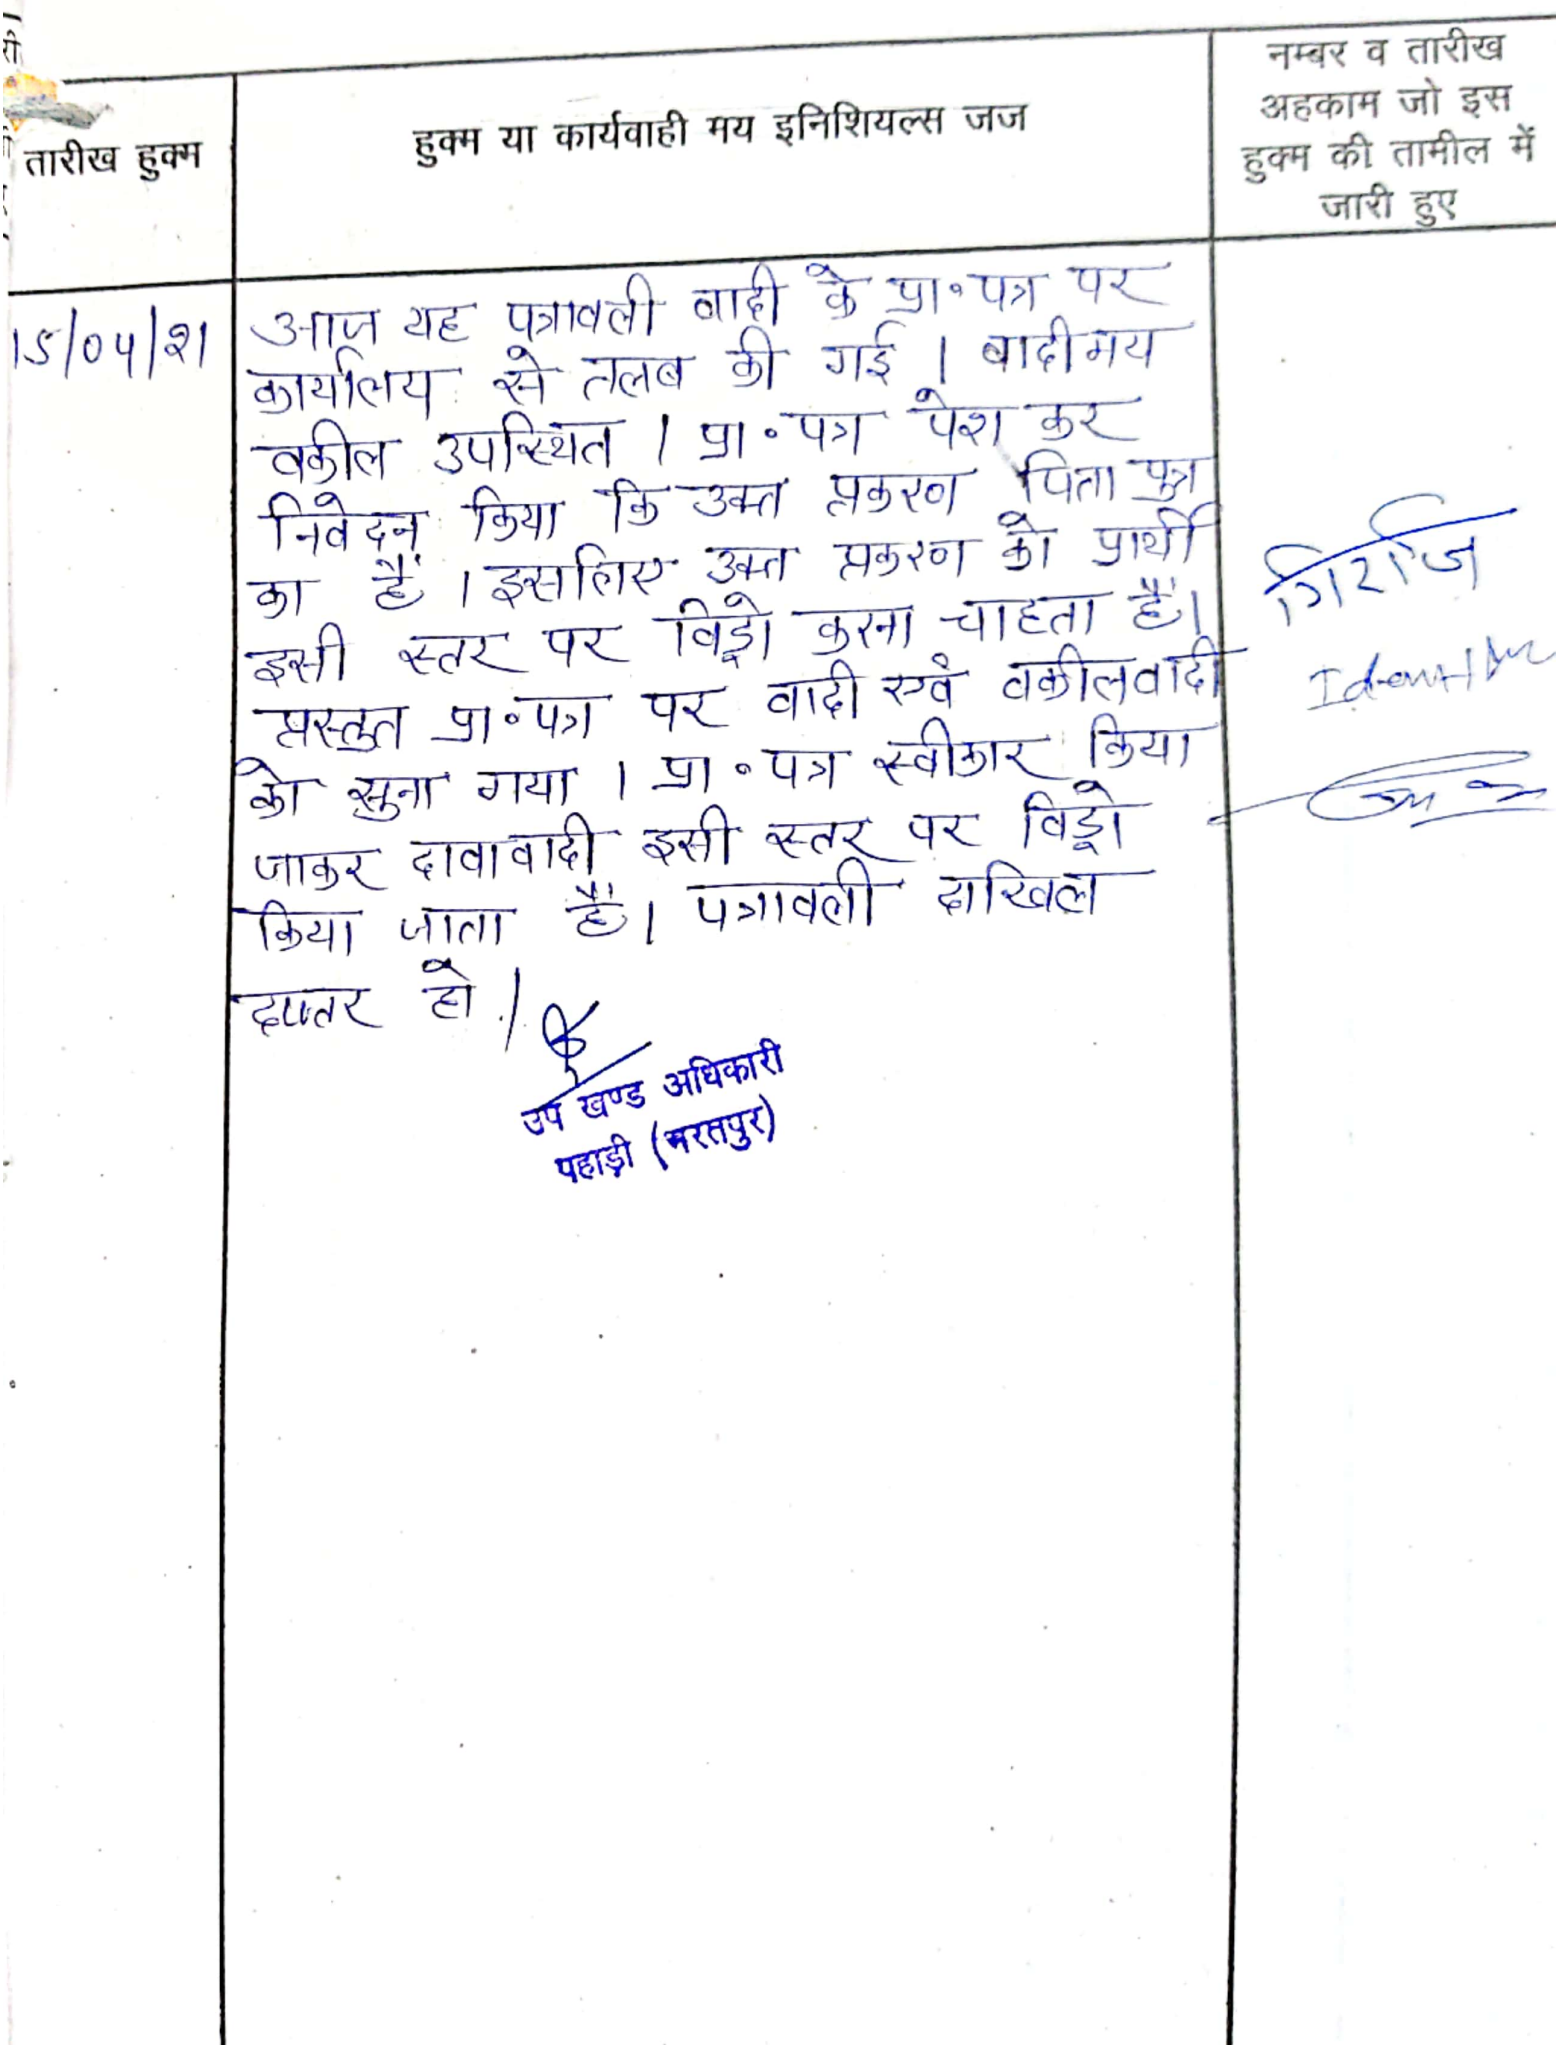 तारीख हुक्म
हुक्म या कार्यवाही मय इनिशियल्स जज
नम्बर व तारीख
अहकाम जो इस
हुक्म की तामील में
जारी हुए
15/04/21
आज यह पत्रावली वादी के प्रा॰पत्र पर
कार्यालय से तलब की गई । वादीमय
वकील उपस्थित । प्रा॰पत्र पेश कर
निवेदन किया कि उक्त प्रकरण पिता पुत्र
का हैं । इसलिए उक्त प्रकरण को प्रार्थी
इसी स्तर पर विड्रो करना चाहता हैं।
प्रस्तुत प्रा॰पत्र पर वादी एवं वकीलवादी
को सुना गया । प्रा॰पत्र स्वीकार किया
जाकर दावावादी इसी स्तर पर विड्रो
किया जाता हैं। पत्रावली दाखिल
दफ्तर हो ।
गिर्राज
उप खण्ड अधिकारी
पहाड़ी (भरतपुर)